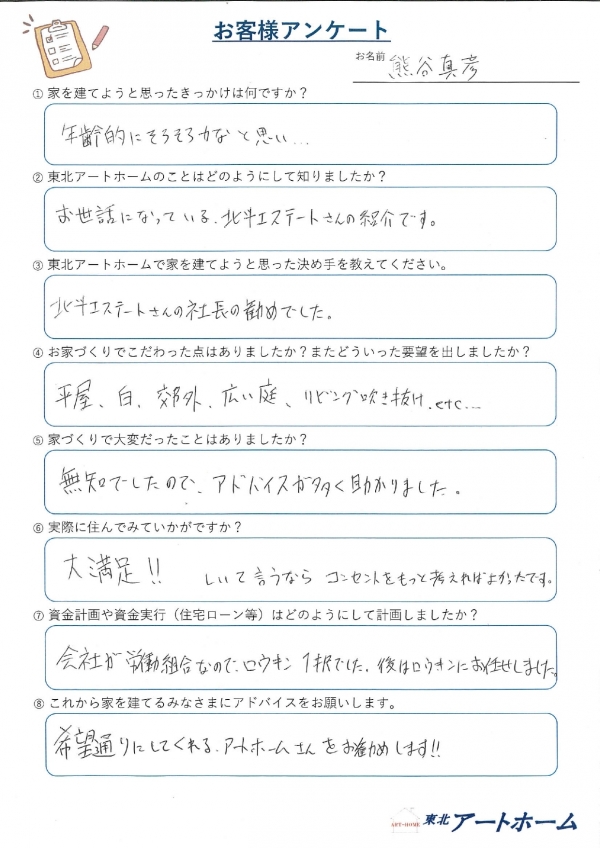 お客様アンケート
お名前 熊谷真彦
① 家を建てようと思ったきっかけは何ですか?
年齢的にそろそろかなと思い…
② 東北アートホームのことはどのようにして知りましたか?
お世話になっている、北斗エステートさんの紹介です。
③ 東北アートホームで家を建てようと思った決め手を教えてください。
北斗エステートさんの社長の勧めでした。
④ お家づくりでこだわった点はありましたか?またどういった要望を出しましたか?
平屋、白、郊外、広い庭、リビング吹き抜け、etc…
⑤ 家づくりで大変だったことはありましたか?
無知でしたので、アドバイスが多く助かりました。
⑥ 実際に住んでみていかがですか?
大満足!! しいて言うなら コンセントをもっと考えればよかったです。
⑦ 資金計画や資金実行(住宅ローン等)はどのようにして計画しましたか?
会社が労働組合なので、ロウキン1択でした。後はロウキンにお任せしました。
⑧ これから家を建てるみなさまにアドバイスをお願いします。
希望通りにしてくれる、アートホームさんをお勧めします!!
ART-HOME 東北 アートホーム